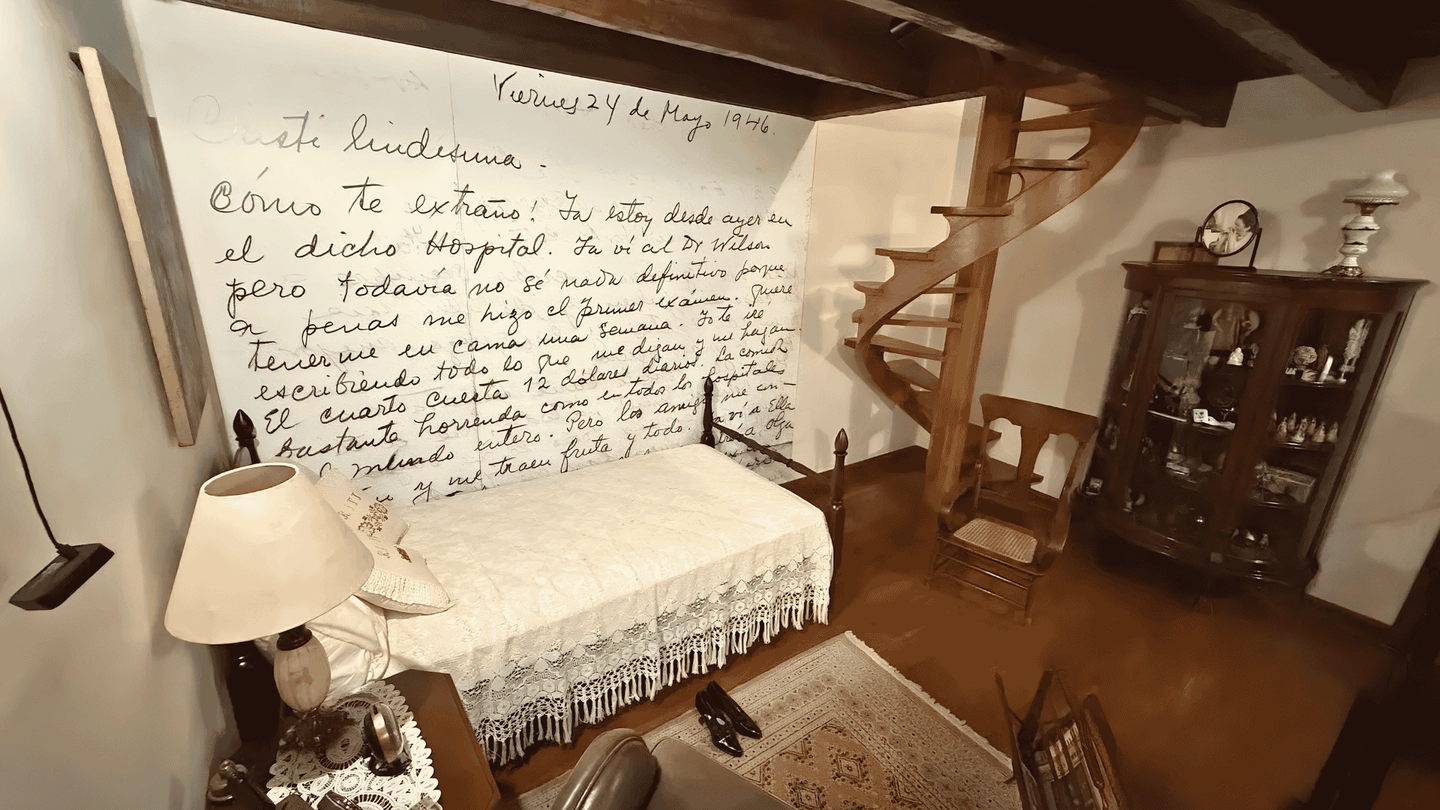 Viernes 24 de Mayo 1946.
Cristi lindísima -
Cómo te extraño! Ya estoy desde ayer en
el dicho Hospital. Ya ví al Dr Wilson
pero todavía no sé nada definitivo porque
a penas me hizo el primer exámen. Quiere
tenerme en cama una semana. Yo te iré
escribiendo todo lo que me digan y me hagan
El cuarto cuesta 12 dólares diarios. La comida
bastante horrenda como en todos los hospitales
mundo entero. Pero los amigos me
y me traen fruta y todo. ví a Ella
a Olga